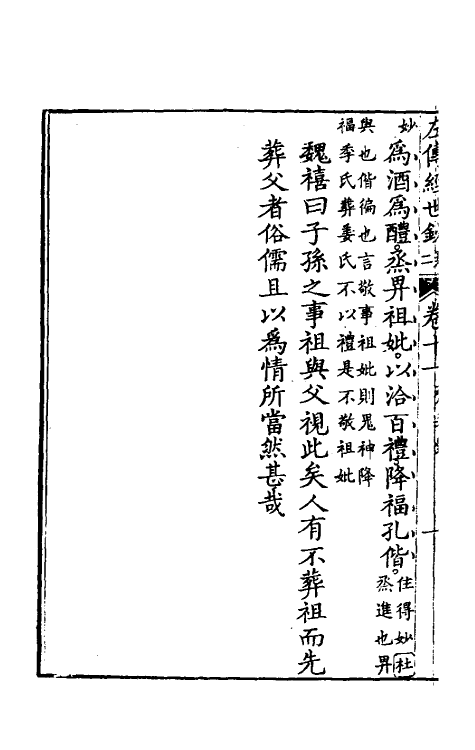 左傳經世鈔 卷十一
妙
爲酒爲醴。烝畀祖妣。以洽百禮。降福孔偕。
住得妙 杜
烝進也畀
與也偕徧也言敬事祖妣則鬼神降
福季氏葬姜氏不以禮是不敬祖妣
魏禧曰子孫之事祖與父視此矣人有不葬祖而先
葬父者俗儒且以爲情所當然甚哉